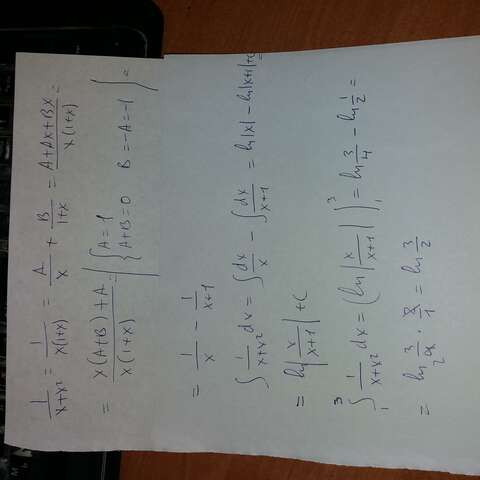 1/(x+x²) = 1/(x(1+x)) = A/x + B/(1+x) = (A+Ax+Bx)/(x(1+x)) =
= (x(A+B)+A)/(x(1+x)) = ( { A=1 A+B=0 B=-A=-1 ) =
= 1/x - 1/(x+1)
∫ 1/(x+x²) dx = ∫ dx/x - ∫ dx/(x+1) = ln|x| - ln|x+1| + C =
= ln|x/(x+1)| + C
∫₁³ 1/(x+x²) dx = (ln|x/(x+1)|)|₁³ = ln 3/4 - ln 1/2 =
= ln 3/4 · 2/1 = ln 3/2